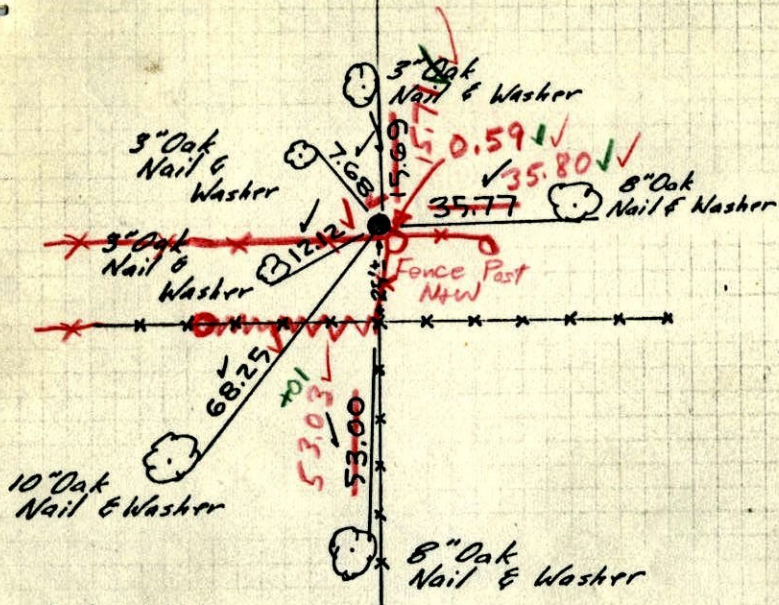 3" Oak
Nail & Washer
15.69
15.71
0.59
3" Oak
Nail &
Washer
7.68
35.80
35.77
8" Oak
Nail & Washer
3" Oak
Nail &
Washer
12.12
Fence Post
N+W
68.25
+01
53.03
53.00
10" Oak
Nail & Washer
8" Oak
Nail & Washer